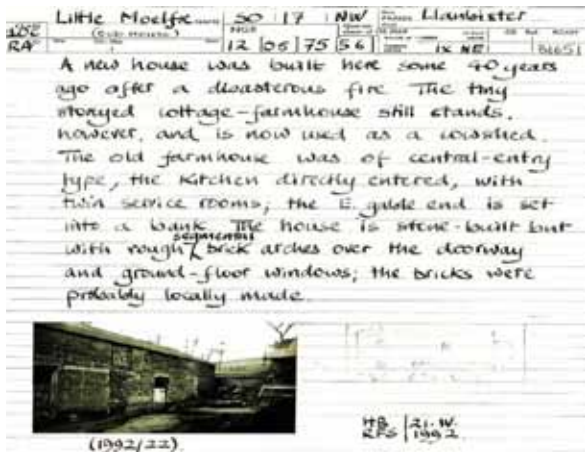 Little Moelfre SO 17 NW Llanbister
(Sub-House) NGR
RA 12 05 75 56 IX NE 81651
A new house was built here some 40 years
ago after a disasterous fire The tiny
storeyed cottage-farmhouse still stands,
however, and is now used as a cowshed.
The old farmhouse was of central-entry
type, the kitchen directly entered, with
twin service rooms; the E. gable end is set
into a bank. The house is stone-built but
with rough segmental brick arches over the doorway
and ground-floor windows; the bricks were
probably locally made.
HB 21. IV.
RFS 1992
(1992/22)